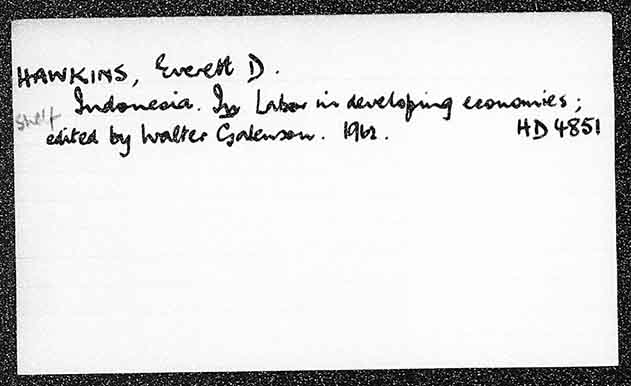 HAWKINS, Everett D.
Indonesia. In Labor in developing economies;
shelf
edited by Walter Galenson. 1962. HD 4851